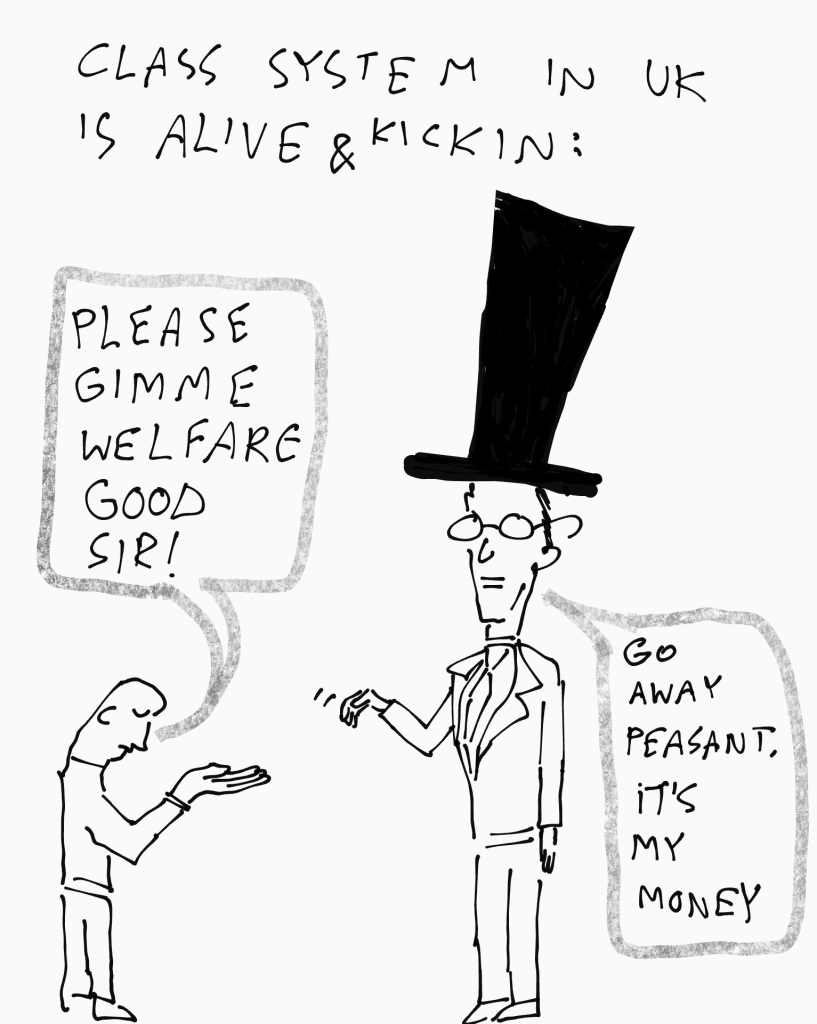 CLASS SYSTEM IN UK
IS ALIVE & KICKIN:
PLEASE
GIMME
WELFARE
GOOD
SIR!
GO
AWAY
PEASANT.
IT'S
MY
MONEY